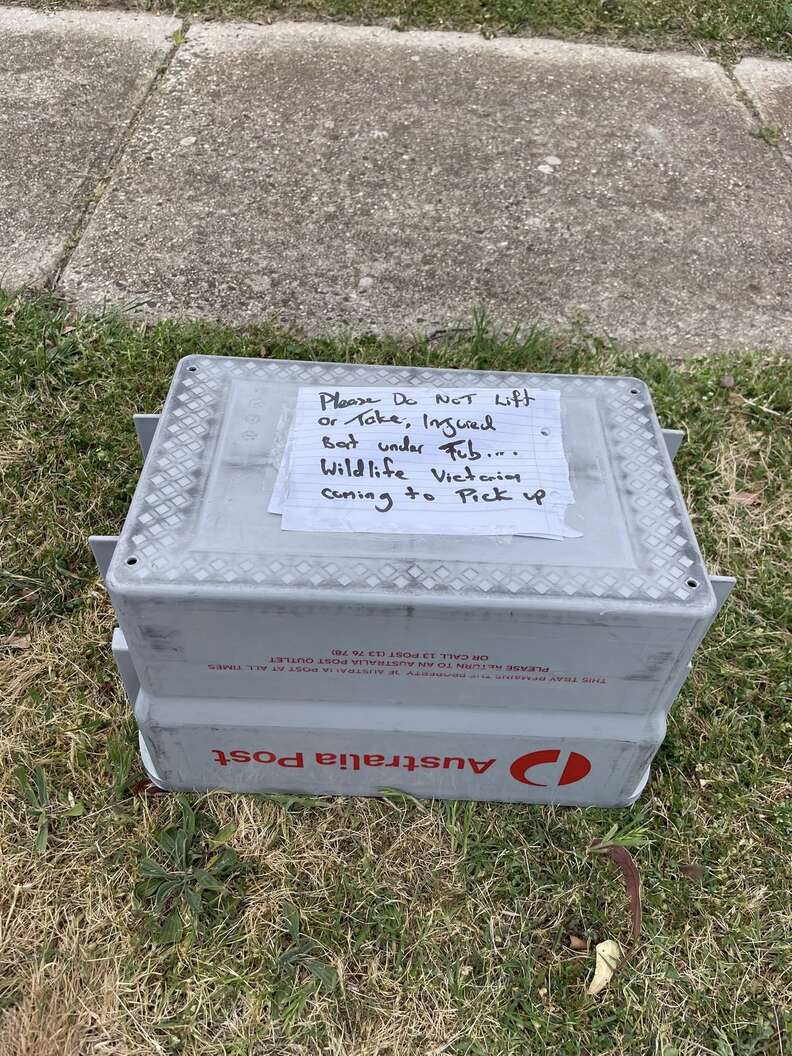 Please Do NOT Lift
or Take, Injured
Bat under Tub....
Wildlife Victoria
coming to Pick up
Australia Post
THIS TRAY REMAINS THE PROPERTY OF AUSTRALIA POST AT ALL TIMES
PLEASE RETURN TO AN AUSTRALIA POST OUTLET
OR CALL 13 POST (13 76 78)